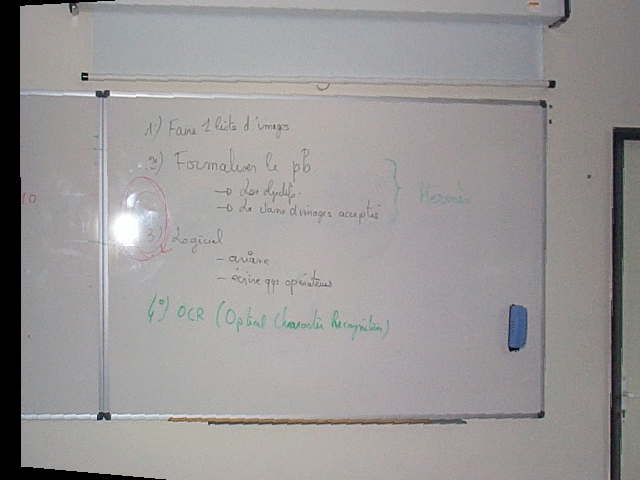 1) Faire 1 liste d'images
2) Formaliser le pb
→ Les objectifs.
→ La classe d'images acceptés
Hermès
10
3) Logiciel
- ariane
- écrire qqs opérateurs
4°) OCR (Optical Character Recognition)